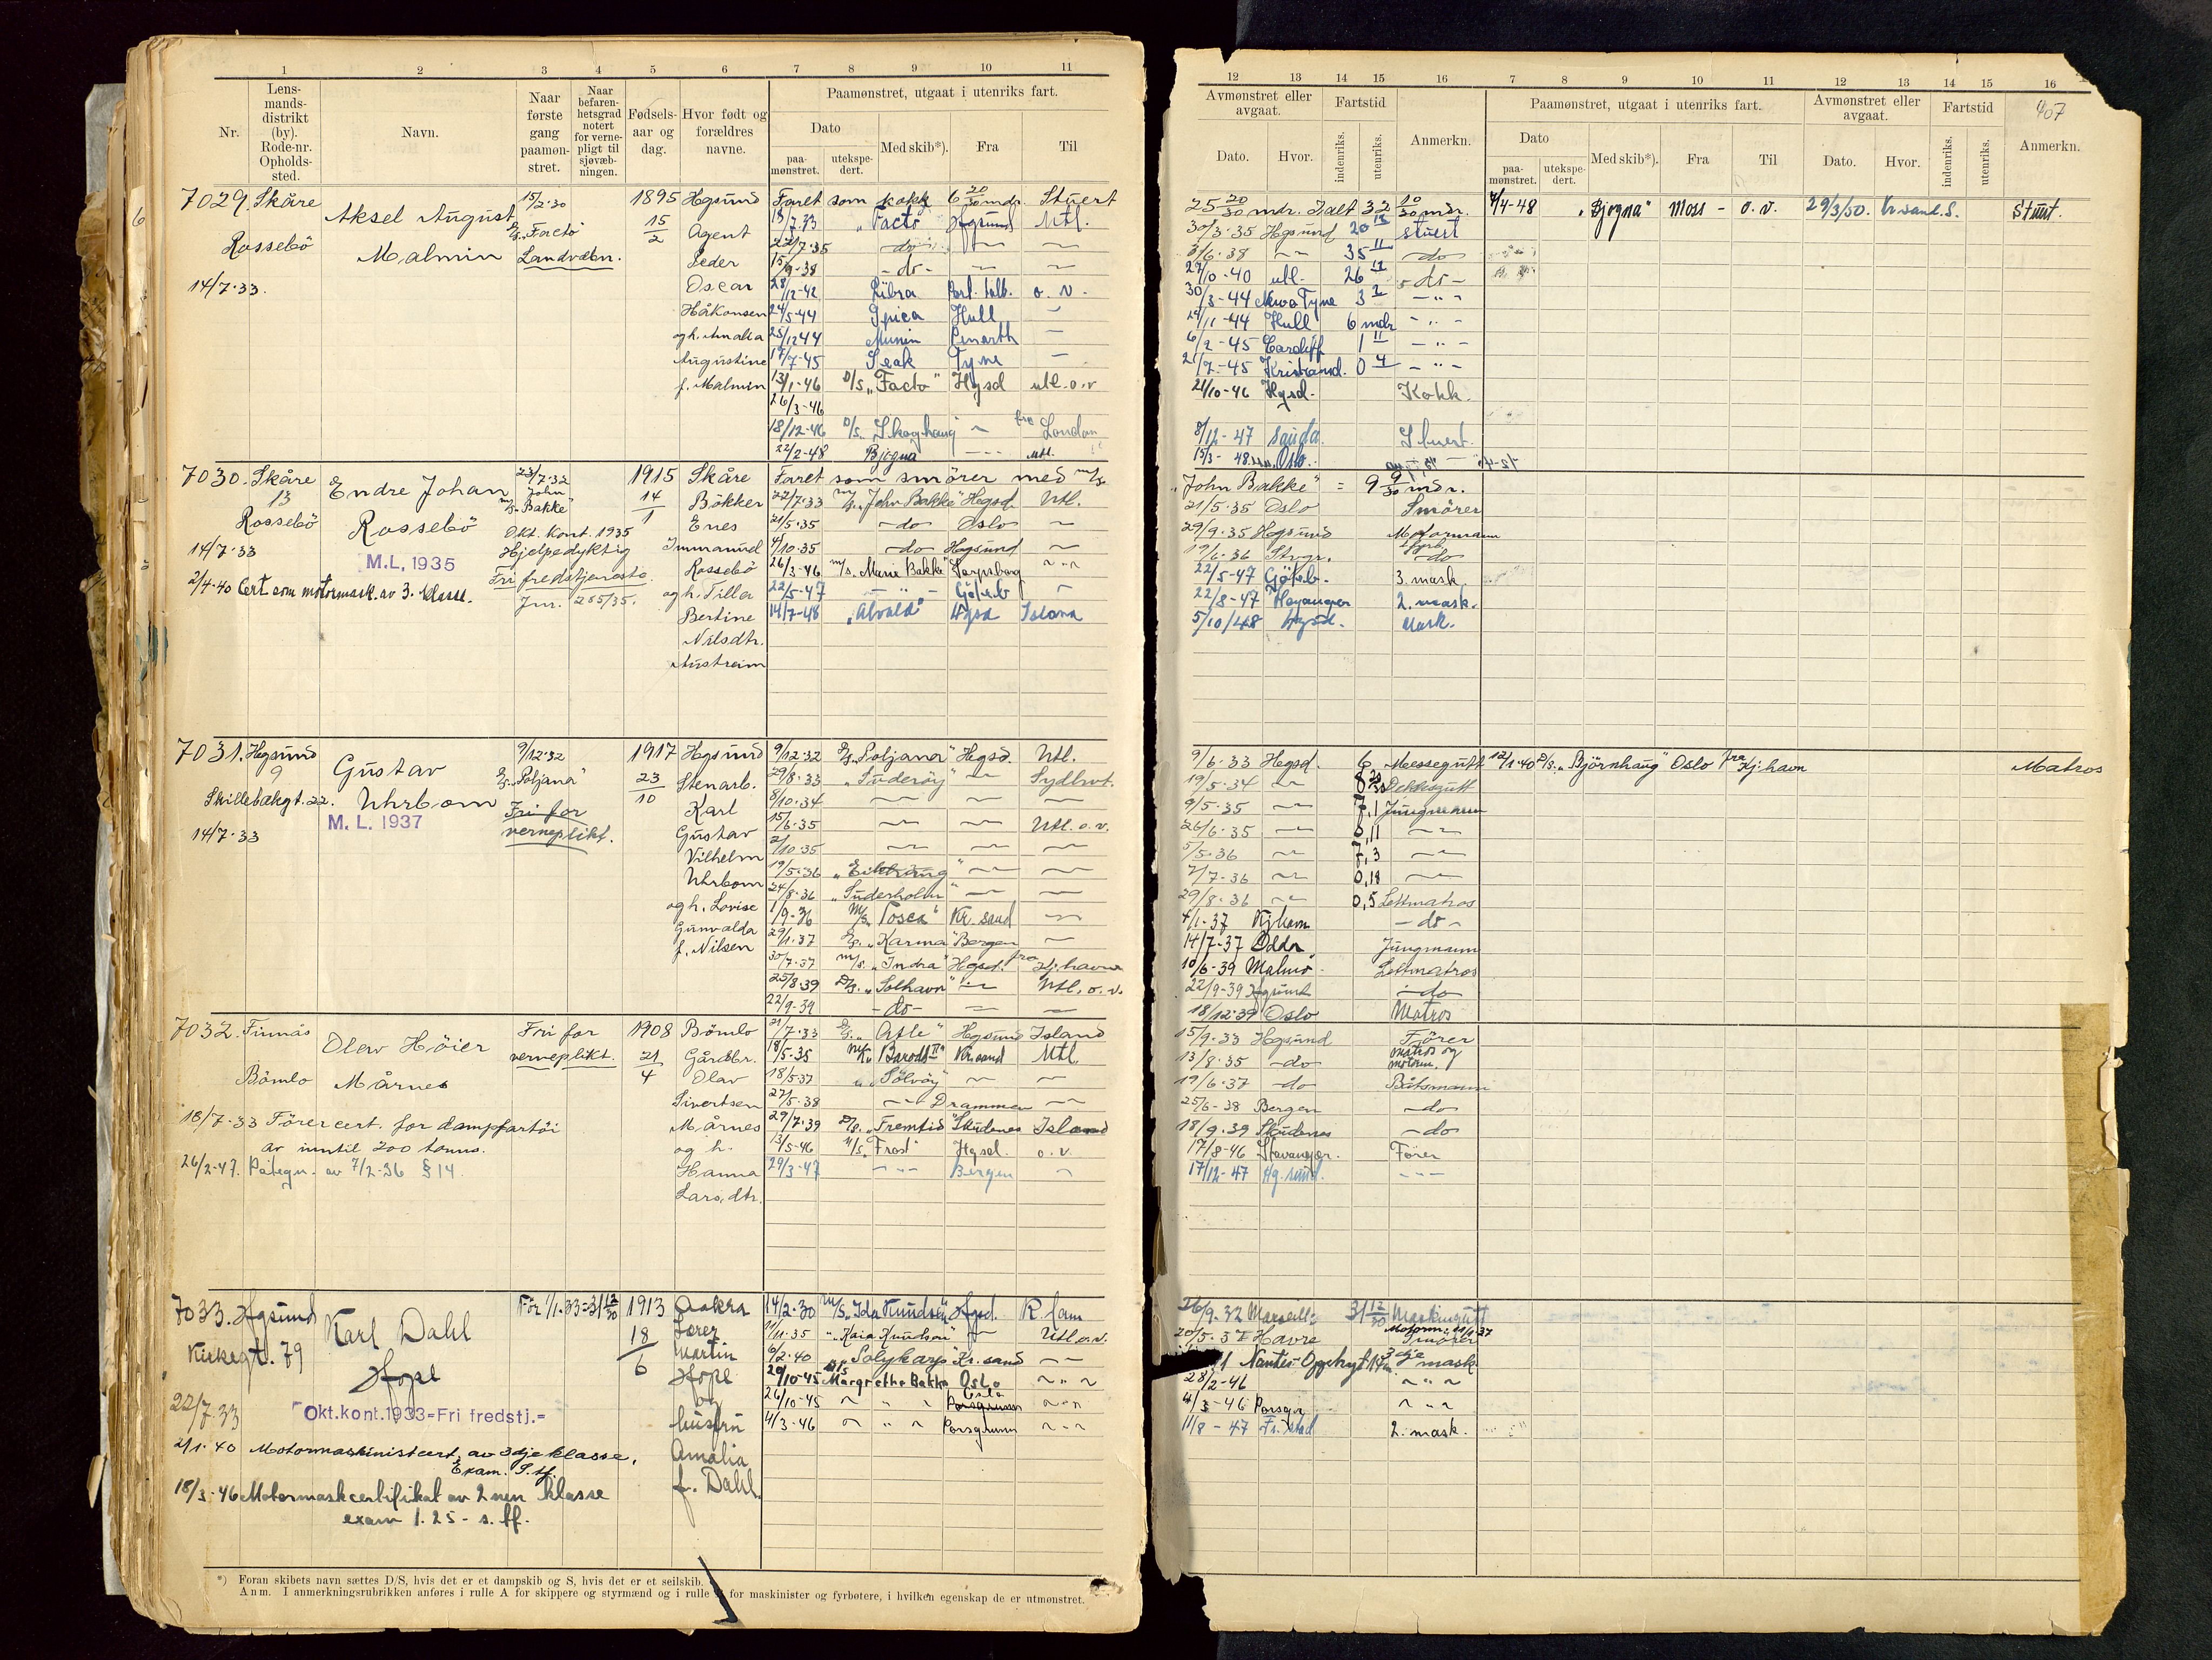 1 2 3 4 5 6 7 8 9 10 11
Nr.
Lens-
mands-
distrikt
(by).
Rode-nr.
Opholds-
sted.
Navn.
Naar
første
gang
paamøn-
stret.
Naar
befaren-
hetsgrad
notert
for verne-
pligt til
sjøvæb-
ningen.
Fødsels-
aar og
dag.
Hvor født og
forældres
navne.
Paamønstret, utgaat i utenriks fart.
Dato
paa-
mønstret.
utekspe-
dert.
Med skib*).
Fra
Til
7029. Skåre
Rossebö
14/7.33.
Aksel August
Malmin
15/2.30
D/S. "Facto"
Landvåbn.
1895
15
2
Hgsund
Agent
Peder
Oscar
Håkonsen
og h. Amalia
Augustine
f. Malmin
Faret som kokk 6 20/30 mdr. Stuert
13/7.33 "Facto Hgsund Utl.
22/7.35 - do -
15/9-38 - do -
28/12-42 Libra Port. Talb. o. v.
24/5-44 Spica Hull
25/12 44 Munin Penarth
17/7-45 Seak Tyne
13/1-46 D/S "Facto" Hgsd utl. o. v
26/3-46
18/12-46 D/S. Skoghaug fra London
22/2-48 Bjogna utl.
7030. Skåre
13
Rossebö
14/7.33
Endre Johan
Rossebö
M.L, 1935
2/4-40 Cert som motormask. av 3. klasse.
23/7.32
m/s "John
Bakke"
Okt. kont. 1935
Hjelpedyktig
Fri fredstjeneste
Jnr. 285/35.
1915
14
1
Skåre
Bökker
Enes
Immanuel
Rossebö
og h. Tilla
Bertine
Nilsdtr.
Austreim
Faret som smörer med m/s
22/7.33 m/s. "John Bakke" Hgsd. Utl.
21/5.35 - do - Oslo
4/10.35 - do Hgsund
26/3-46 m/s. Marie Bakke Sarpsborg
22/5-47 Göteb
14/7-48 "Alvald" Hgsd Island
7031. Hgsund
9
Skillebækgt. 22.
14/7.33
Gustav
Uhrbom
M. L. 1937
9/12.32
D/S. "Soljana"
Fri for
verneplikt.
1917
23
10
Hgsund
Stenarb.
Karl
Gustav
Vilhelm
Uhrbom
og h. Lovise
Gunvalda
f. Nilsen
9/12.32 D/S. "Soljana" Hgsd. Utl.
29/8.33 "Suderöy" Sydhvt.
8/10.34
15/6.35 Utl. o. v.
2/10.35
19/5.36
24/8.36 "Suderholm"
1/9-36 M/S. "Tosca" Kr. sand
29/1.37 D/S. "Karma" Bergen
30/7-37 m/s. "Indra" Hgsd. fra Kj. havn
25/8.39 D/S. "Solhavn" Utl. o. v.
22/9-39 - do -
7032. Finnås
Bömlo
Olav Höier
Mårnes
Fri for
verneplikt.
18/7.33 Förercert. for dampfartöi
av inntil 200 tonns.
26/2-47. Påtegn. av 7/2-36 § 14.
1908
21
4
Bömlo
Gårdbr.
Olav
Sivertsen
Mårnes
og h.
Hanna
Lars. dtr.
21/7.33 D/S. "Atle" Hgsund Island
18/5-35 M/K "Barods II" Kr. sand Utl
18/5-37 "Sölvöy"
27/5.38 Drammen
29/7.39 D/S. "Fremtid" Skudenes Island
13/5-46 M/S "Frost" Hgsd. o. v.
29/3-47 Bergen
7033. Hgsund
Kirkegt. 79
22/7.33
Karl Dahl
Hope
Okt.kont.1933=Fri fredstj.=
2/1-40 Motormaskinistcert. av 3dje klasse.
Exam. S. tf.
18/3-46 Motormaskcertifikat av 2nen klasse
exam 1.25 - s. tf.
För 1/1.33 = 31 12/30
1913
18
6
Aakra
Lærer
Martin
Hope
og
hustru
Amalia
f. Dahl.
14/2-30 M/S. Ida Knudsen Hgsd. R. fam
11/11.35 "Kaia Knudsen" Utl o. v.
6/2.40 "Polykarp" Kr. sand
20/10-45 M/S Margrethe Bakke Oslo
26/10-45 Oslo Porsgrunn
4/3-46 Porsgrunn
*) Foran skibets navn sættes D/S, hvis det er et dampskib og S, hvis det er et seilskib.
Anm. I anmerkningsrubrikken anføres i rulle A for skippere og styrmænd og i rulle for maskinister og fyrbøtere, i hvilken egenskap de er utmønstret.
12 13 14 15 16 7 8 9 10 11 12 13 14 15 16
407
Avmønstret eller
avgaat.
Dato.
Hvor.
Fartstid
indenriks.
utenriks.
Anmerkn.
Paamønstret, utgaat i utenriks fart.
Dato
paa-
mønstret.
utekspe-
dert.
Med skib*).
Fra
Til
Avmønstret eller
avgaat.
Dato.
Hvor.
Fartstid
indenriks.
utenriks.
Anmerkn.
25 20/30 mdr. Ialt 32 10/30 mdr. 7/4-48 "Bjogna" Moss - o. v. 29/3/50. Kr. sand. S. Stuert.
30/3.35 Hgsund 20 Stuert
3/6.38 35 11 do
27/10-40 utl. 26 - do -
30/3-44 Newc Tyne 3
/11-44 Hull 6 mdr
6/2-45 Cardiff 1 11
2/9-45 Kristiansd. 0 4
21/10-46 Hgsd. Kokk.
8/12-47 Sauda. Stuert.
15/3-48 Oslo.
"John Bakke" = 9 9/30 mdr.
21/5.35 Oslo Smörer
29/9.35 Hgsund Motormann
19/6.36 Stvgr. do
22/5-47 Göteb. 3. mask.
22/8-47 Höyanger 2. mask.
5/10/48 Hgsd. Mask.
9/6.33 Hgsd. 6 Messegutt 12/1.40 D/S. "Björnhaug" Oslo fra Kj. havn Matros
19/5.34 8 Dekksgutt
9/5.35 7,1 Jungmann
26/6.35
5/5.36 7,3
7/7-36 0,18
29/8.36 0,5 Lettmatros
4/1-37 Kj havn - do -
14/7-37 Odda Jungmann
10/6-39 Malmö Lettmatros
22/9-39 Hgsund - do
18/12-39 Oslo Matros
15/9.33 Hgsund Förer
13/8.35 - do matros og
motorm.
19/6.37 - do Båtsmann
25/6-38 Bergen - do
18/9.39 Skudenes - do
17/8-46 Stavanger. Förer
17/12-47 Hg. sund.
26/9.32 Marseille 31 12/30 Maskingutt
20/5.3 Havre Motorm. Smörer
Nantes - Opphyt 3dje mask
28/2-46
4/3-46 Porsgr
11/8-47 Fr. stad 2. mask.